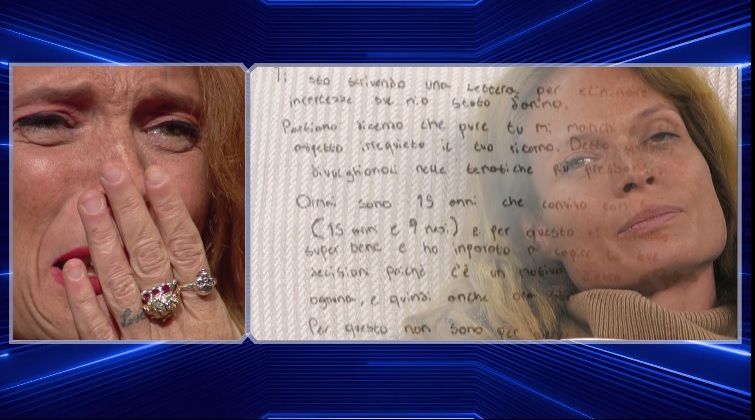 Ti sto scrivendo una lettera per eliminare
incertezze sul mio stato d'animo.
Partiamo dicendo che pure tu mi manchi
aspetto irrequieto il tuo ritorno. Detto
divulghiamoci nelle tematiche più
Ormai sono 15 anni che convivo con
(15 anni e 9 mesi) e per questo
super bene e ho imparato a capire le tue
decisioni poiché c'è un motivo dietro
ognuna, e quindi anche
Per questo non sono per